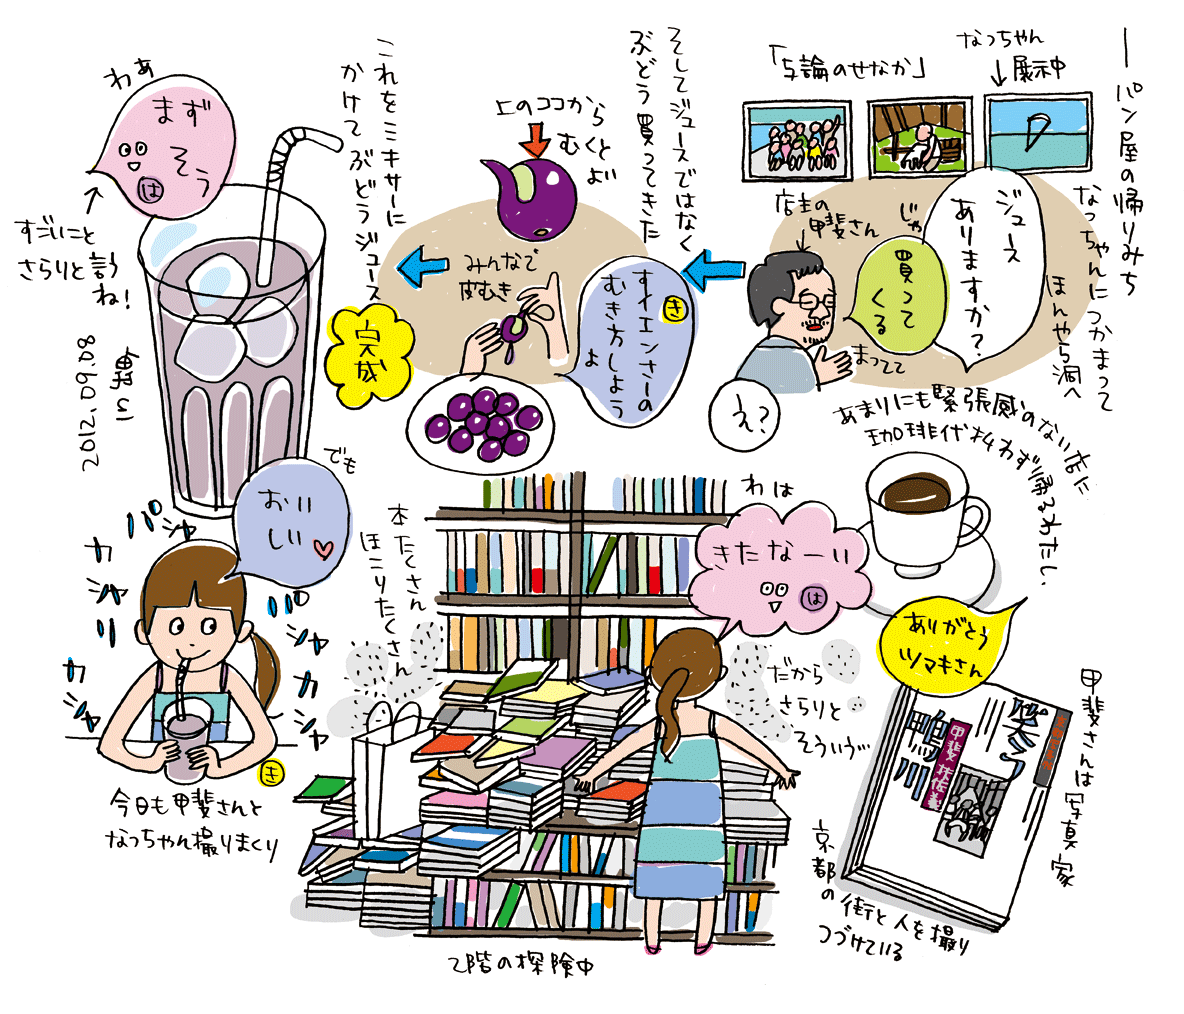 パン屋の帰りみち
なっちゃんにつかまって
ほんやら洞へ
なっちゃん
展示中
「与論のせなか」
ジュース
ありますか?
店主の
甲斐さん
じゃ
買って
くる
まってて
え?
あまりにも緊張感のない店に
珈琲代払わず帰るわたし、
ありがとう
ツマキさん
そしてジュースではなく
ぶどう買ってきた
上のココから
むくと
よい
みんなで
皮むき
き
すイエンさーの
むき方しよう
よ
これをミキサーに
かけてぶどうジュース
完成
わぁ
まず
そう
は
すごいこと
さらりと言うね!
2012.09.08
でも
おいしい
パシャ
カシャリ
パシャ
カシャ
カシャ
き
今日も甲斐さんと
なっちゃん撮りまくり
本たくさん
ほこりたくさん
わは
きたなーい
は
だから
さらりと
そういう…
2階の探険中
甲斐さんは写真家
笑う
鴨川
甲斐扶佐義
京都の街と人を撮り
つづけている